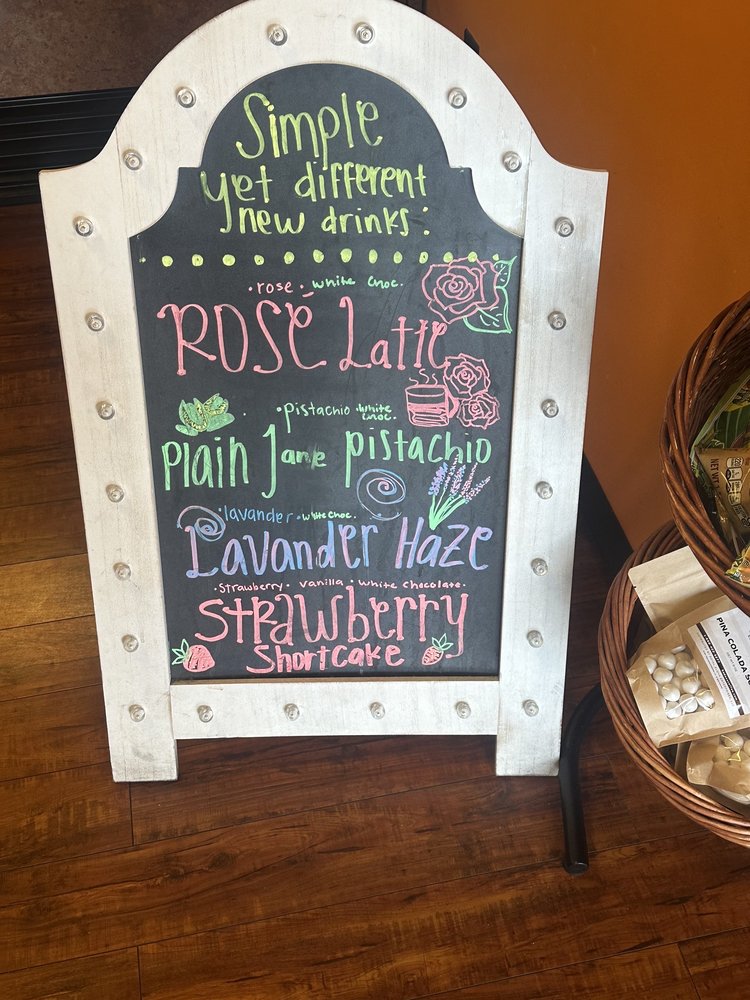 Simple
yet different
new drinks:
• rose • white choc.
ROSÉ Latte
• pistachio • white
choc.
Plain Jane pistachio
• lavander • white choc.
Lavander Haze
• Strawberry • vanilla • white chocolate •
Strawberry
Shortcake
PINA COLADA
NET WT